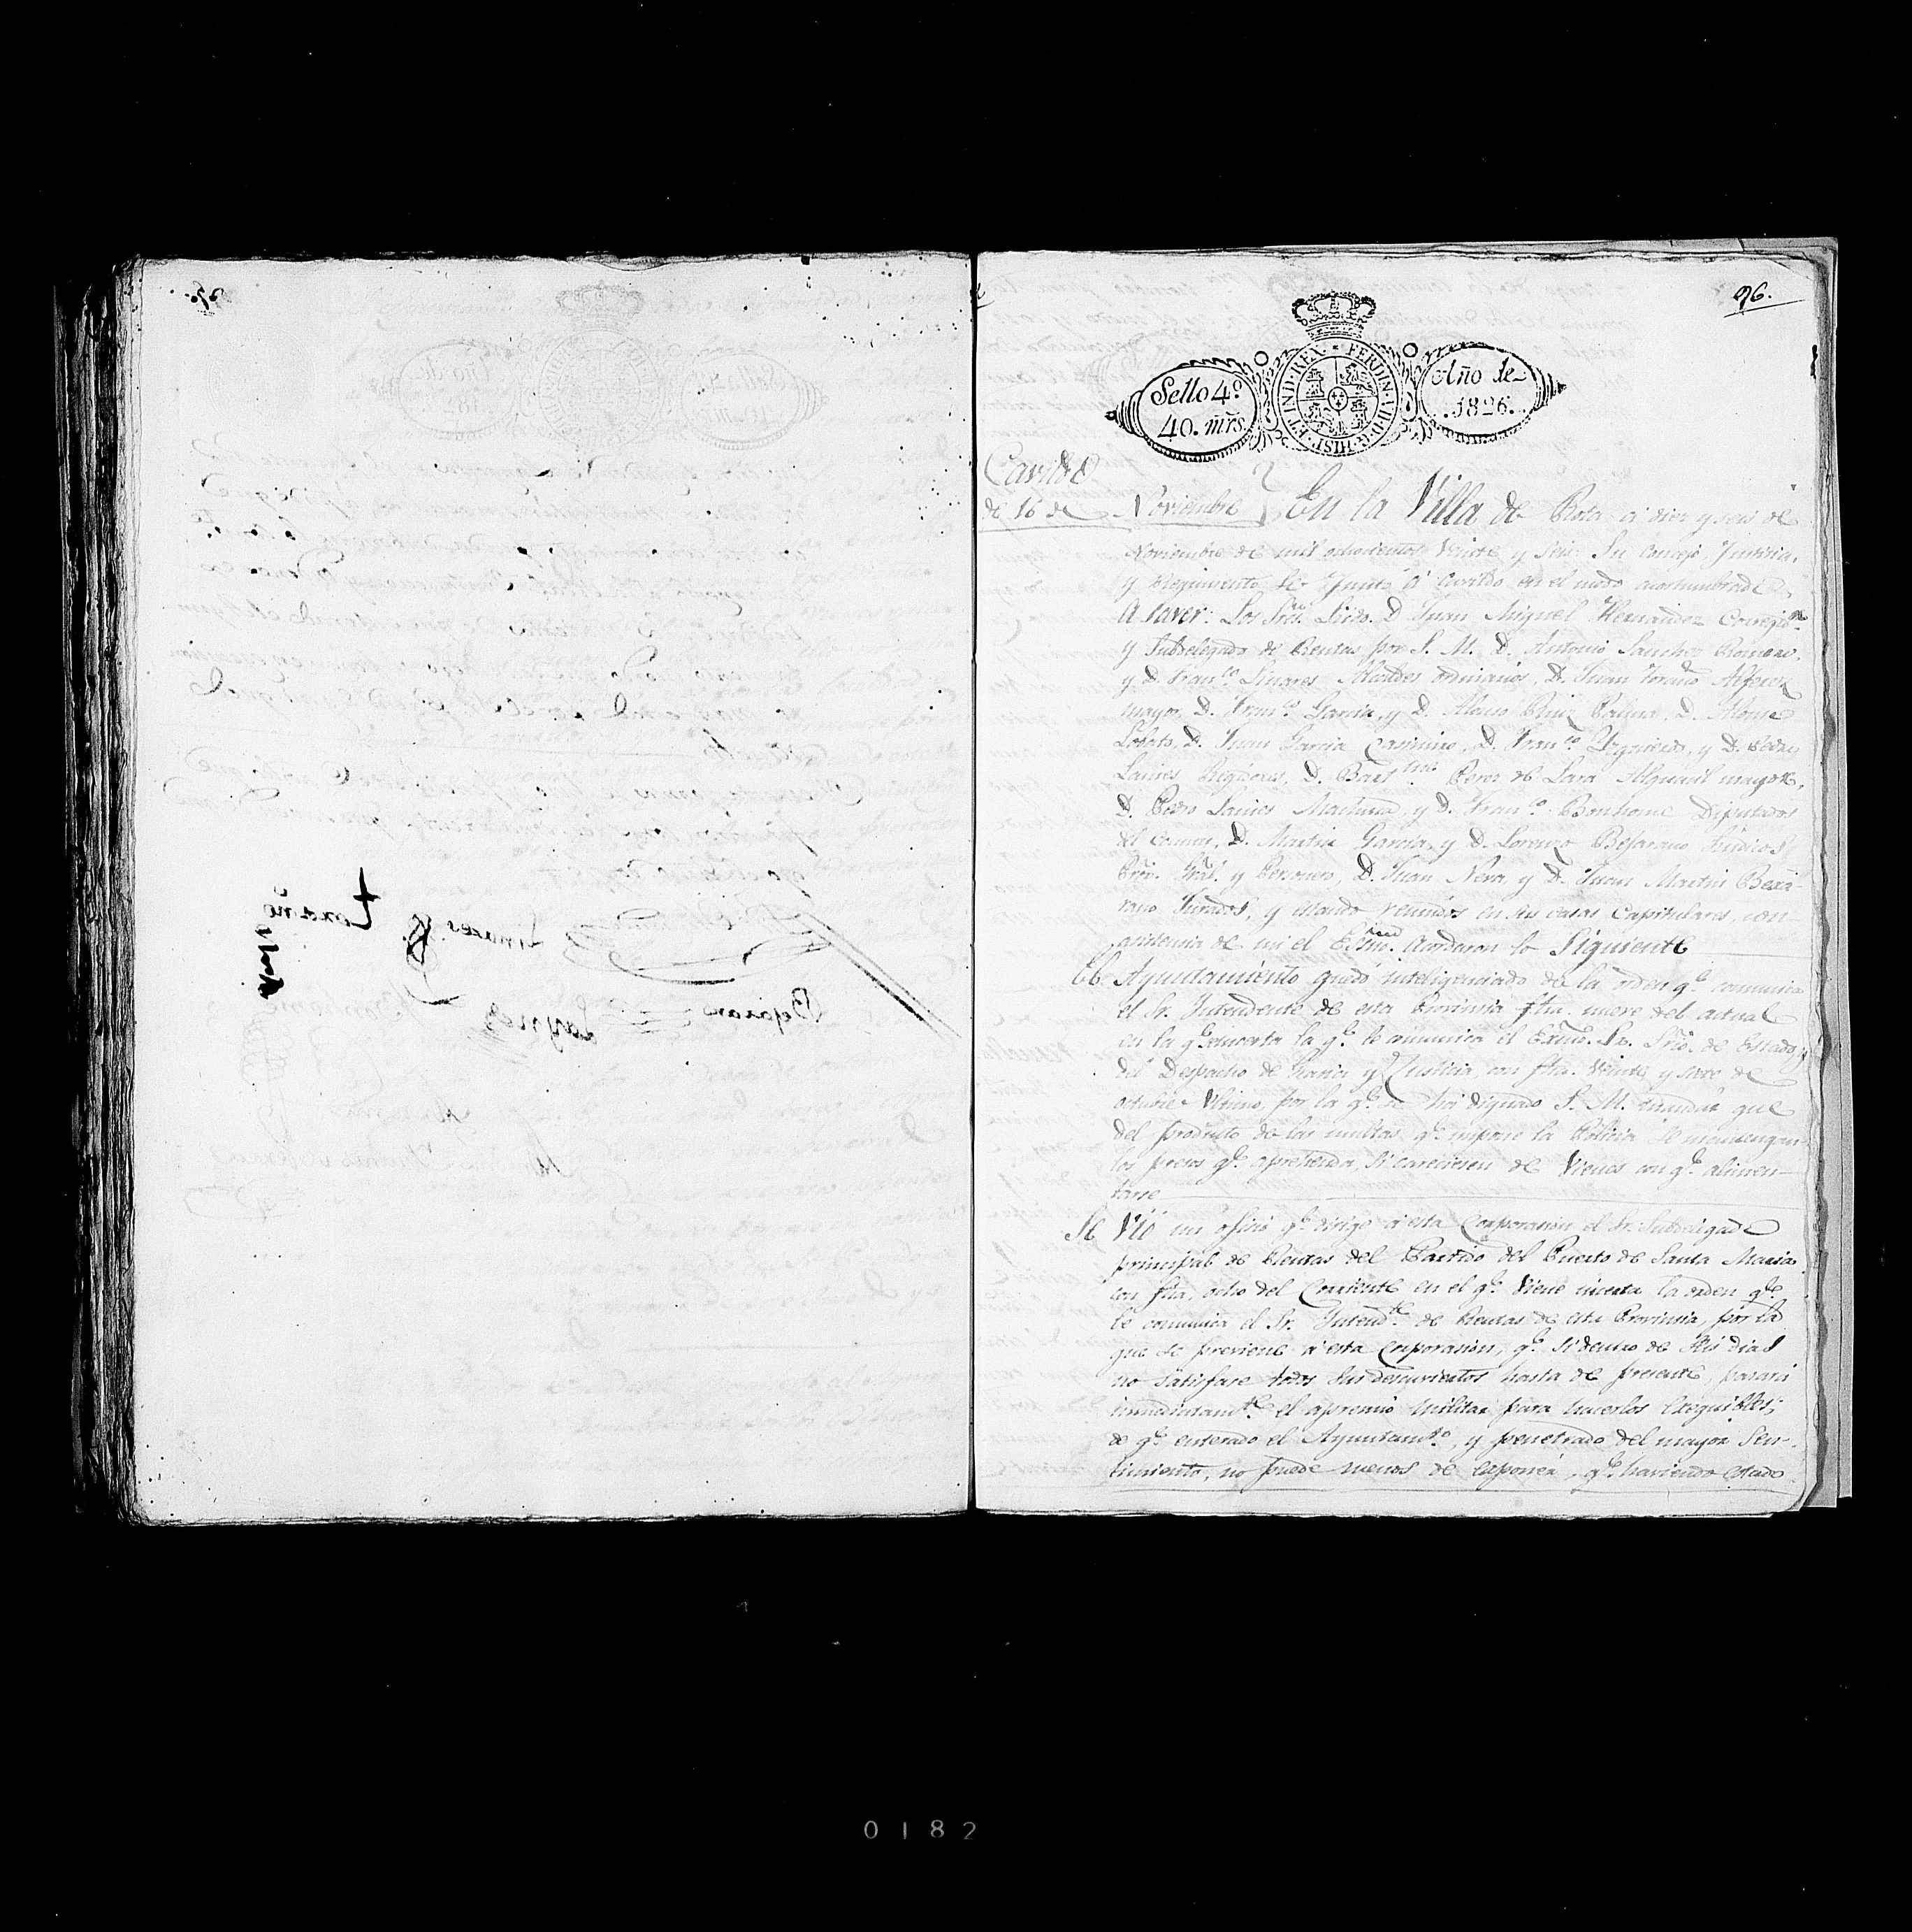 96.
Sello 4º
40. mrs
FERDIN. VII. D. G. HISP. ET IND. REX
Año de
1826.
Cavildo
de 16 de Noviembre
En la Villa de Rota à diez y seis de
Noviembre de mil ochocientos veinte y seis: Su Concejo, Justicia,
y Regimiento se juntó á Cavildo en el modo acostumbrado,
A saver: Los Sres. Lizdo. D. Juan Miguel Hernandez Corregior.
y Subdelegado de Rentas por S. M. D. Antonio Sanchez Romero,
y D. Franco. Linares Alcaldes ordinarios, D. Juan Toraño Alferez
mayor, D. Franco. Garcia, y D. Alonso Ruiz D. Alonso
Lobato, D. Juan Garcia Casimiro, D. Franco. Yzquierdo, y D. Pedro
Laines Regidores, D. Bartme. Perez de Lara Alguacil mayor,
D. Pedro Laines y D. Franco. Bonhome Diputados
del Comun, D. Martin Garcia, y D. Lorenzo Bejarano Sindicos
Pror. Gral. y Personero, D. Juan Neva, y D. Juan Martin Bexa-
rano Jurados, y estando reunidos en sus casas Capitulares, con
asistencia de mi el Esno. acordaron lo Siguiente
El Ayuntamiento quedó inteligenciado de la orden qe. comunica
el Sr. Yntendente de esta Provincia fha. nueve del actual
en la qe. incerta la qe. le comunica el Exmo. Sr. Srio. de Estado, y
del Despacho de Gracia y Justicia, con fha. veinte y siete de
octubre ultimo, por la qe. se ha dignado S. M. mandar que
del producto de las multas qe. impone la Policia se mantengan
los presos qe. aprehenda, si careciesen de vienes con qe. alimen-
tarse
Se Vió un oficio qe. dirige á esta Corporacion el Sr. Subdelegado
principal de Rentas del Partido del Puerto de Santa Maria
con fha. ocho del Corriente en el qe. viene incerta la orden qe.
le comunica el Sr. Yntendte. de Rentas de esta Provincia, por la
que se previene á esta Corporacion, qe. si dentro de seis dias
no satisface todos sus descuviertos hasta de presente, pasará
inmediatamte. el apremio militar para hacerlos exequibles;
de qe. enterado el Ayuntamto., y penetrado del mayor Sen-
timiento, no puede menos de exponer, qe. haviendo estado
0182